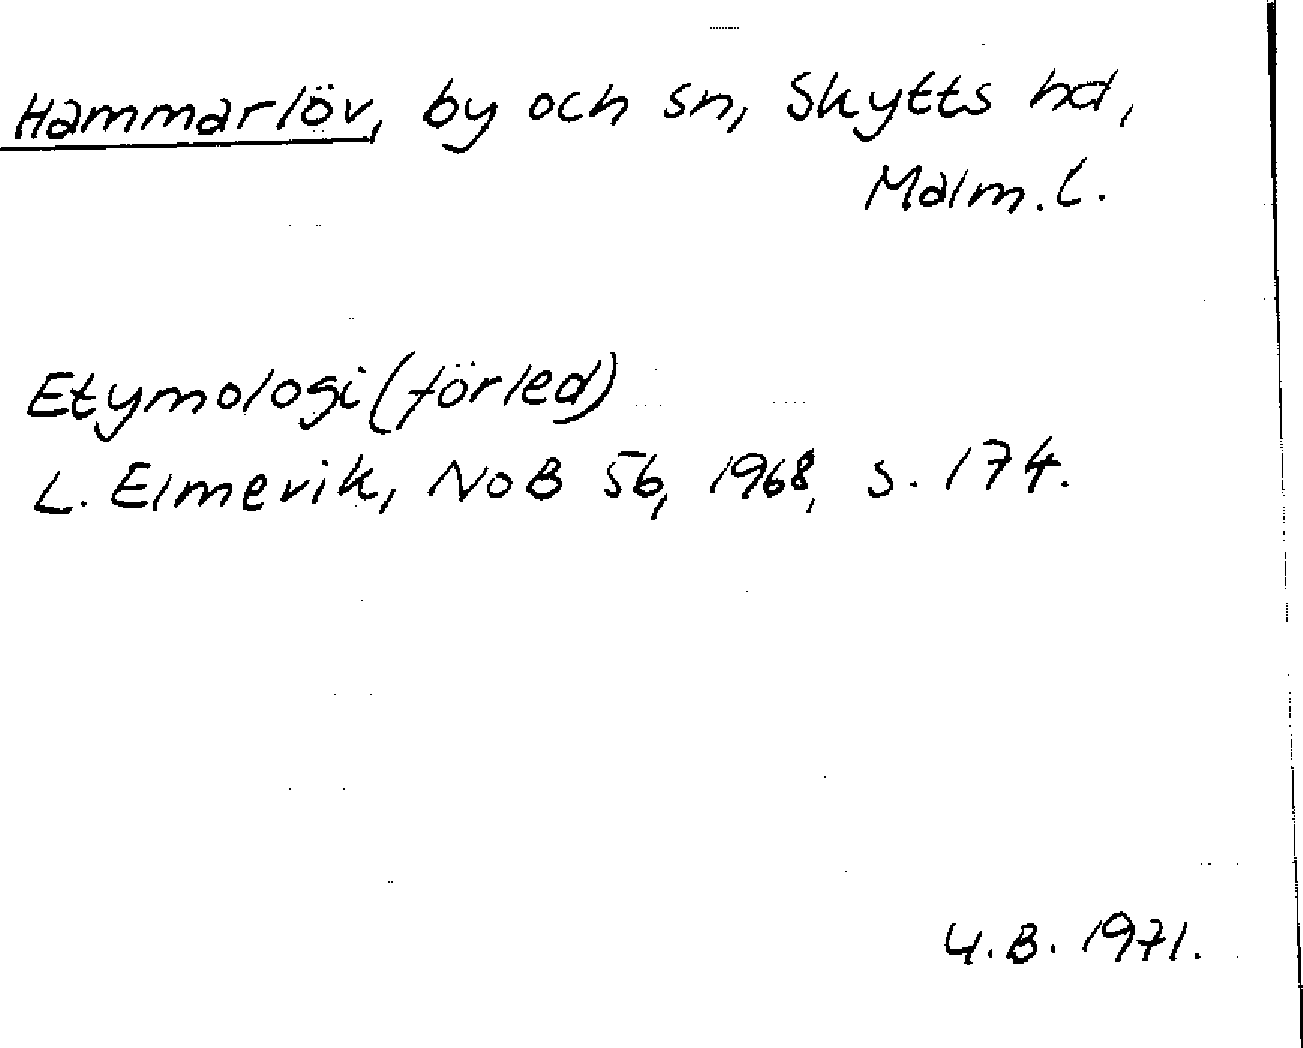 Hammarlöv, by och sn, Skytts hd,
Malm. L.
Etymologi (förled)
L. Elmevik, NoB 56, 1968, s. 174.
U.B. 1971.